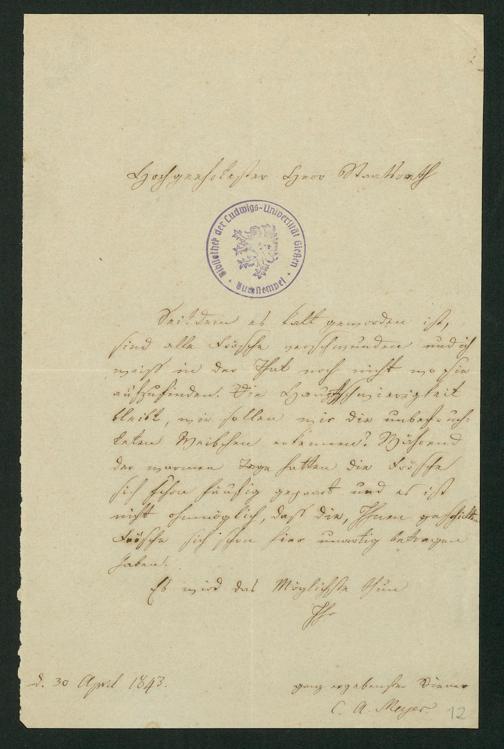 Hochgeehrtester Herr Staatsrath
Bibliothek der Ludwigs-Universität Gießen
Seitdem es kalt geworden ist,
sind alle Frösche verschwunden und ich
weiss in der That noch nicht wo sie
aufzufinden. Die Hauptschwierigkeit
bleibt, wie sollen wir die unbefruch-
teten Weibchen erkennen? Während
der warmen Tage hatten die Frösche
sich schon häufig gepaart und es ist
nicht ohnmöglich, daß die, Ihnen geschickten
Frösche sich schon hier unartig betragen
haben.
Es wird das Möglichste thun
Ihr
d. 30 April 1843.
ganz ergebenster Diener
C. A. Meyer
12